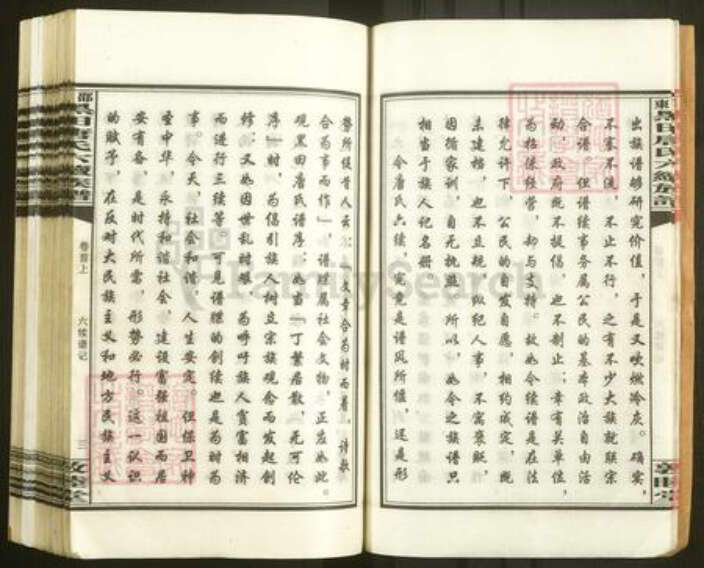 出族谱够研究价值，于是又吹燃冷灰。确实，
不塞不流，不止不行，之有不少大族就联宗
合谱。但谱续事务属公民的基本政治自由活
动，政府既不提倡，也不制止；幸有关单位，
为枯传经营，却与支持。故如今续谱是在法
律允许下，公民的自发自愿，相约成定，既
未建档，也不立规。做纪人事，不寓褒贬，
因循家训，自无执监。所以，如今之族谱只
相当于族人记名册。
令唐氏六续，究竟是谱风所值，还是形
势所使昔人云：“文章合为时而著，诗歌
合为事而作”，谱牒属社会文物，正应如此。
观黑田唐氏谱序，如当“丁繁居散，无可伦
序”时，为倡引族人树立宗族观念而发起创
修；又如因世乱时艰，为呼吁族人贫富相济
而进行三续等，可见谱牒的创续也是为时为
事。今天，社会和谐，人生安定。但保卫神
圣中华，永持和谐社会，建设富强祖国而居
安有备，是时代所需，形势必行。这一认识
的赋予，在反对大民族主义和地方民族主义
卷首上
六续谱记
三
FamilySearch